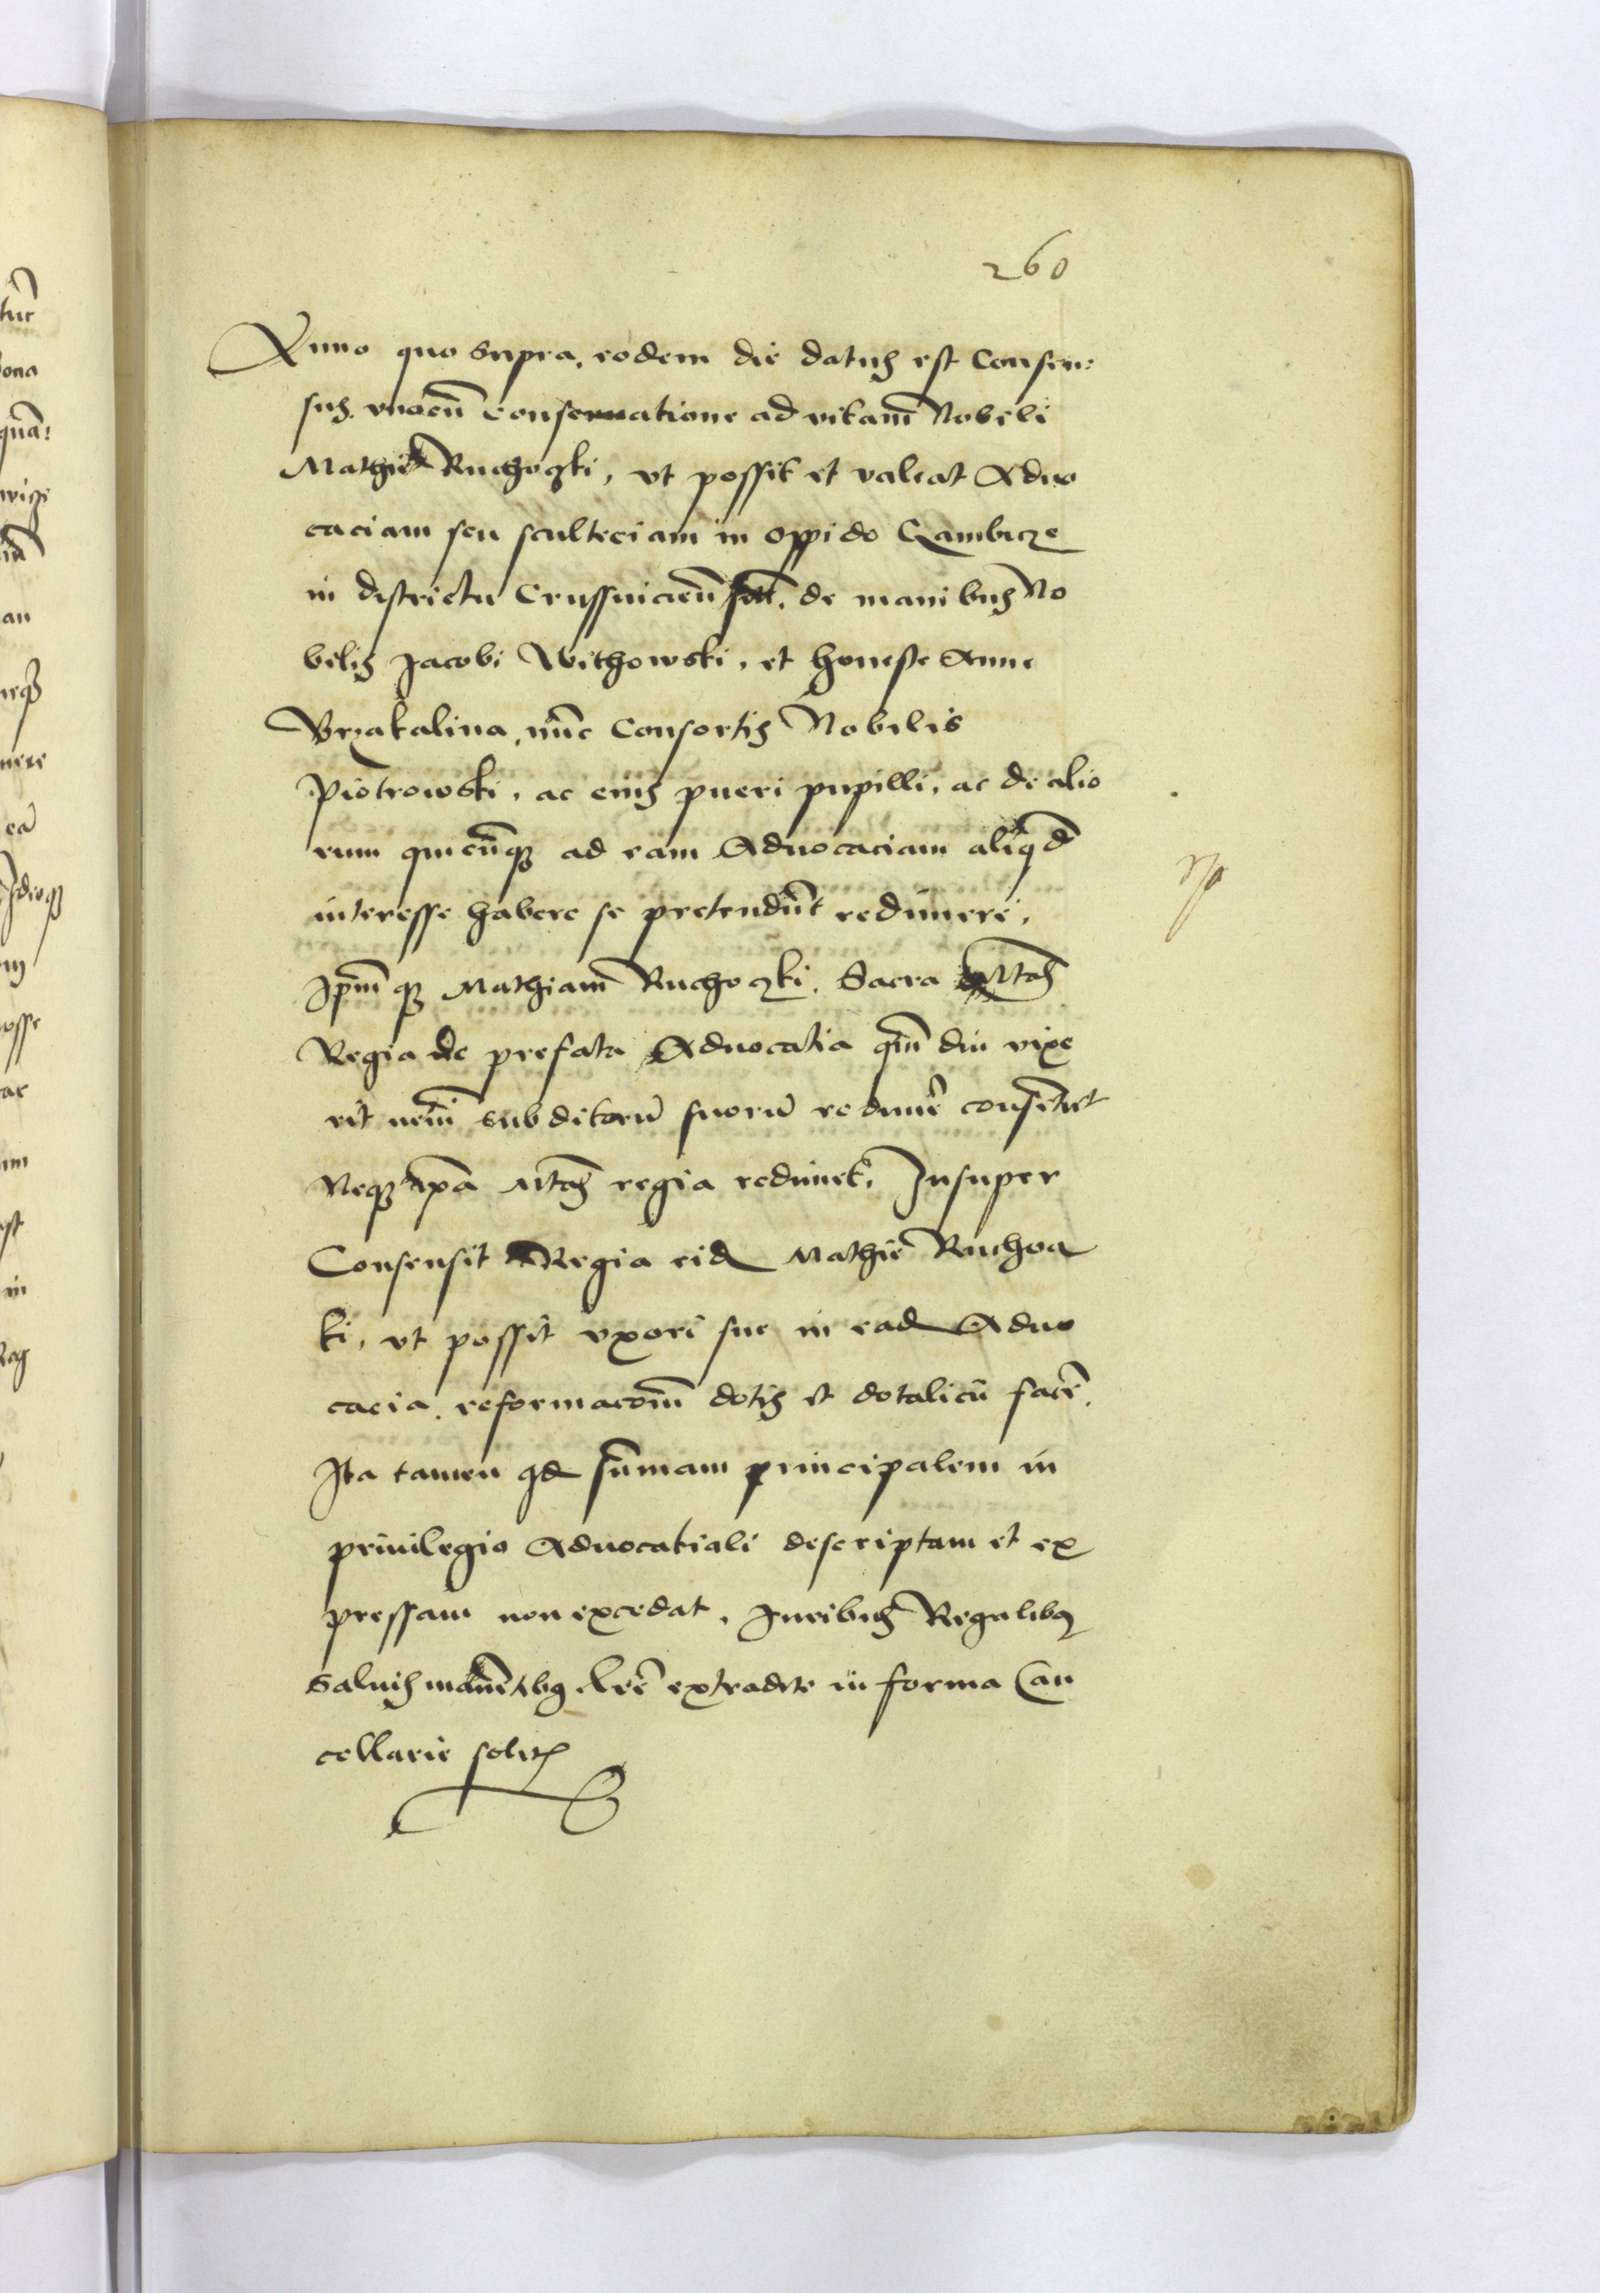 260
Anno quo supra, eodem die datus est Consen:
sus vnacū conseruatione ad vitam̄ Nobili
Mathie Ruchoczki, vt possit et valeat Aduo
caciam seu sculteciam in oppido Gambicze
in districtu Crussuicieñ de manibus No
bilis Jacobi Withowski, et honeste Anne
Brzakalina, nūc Consortis Nobilis
Piotrowski, ac eius pueri pupilli, ac de alio
rum quicūqȝ ad eam Aduocaciam aliqd
interesse habere se pretendūt redimere,
Ipm̄qȝ Mathiam̄ Ruchoczki. Sacra Mtas
Regia de prefata Aduocatia qm̄diu vixe
rit nem̄i subditorū suorū redimē consētiet
Neqȝ ipā Mtas regia redimet. Insuper
Consensit Regia eid Mathie Ruchocz
ki, vt possit vxori sue in ead Aduo
cacia, reformacōm̄ dotis et dotalicū facē.
Ita tamen qd sūmam principalem in
priuilegio Aduocatiali descriptam et ex
pressam non excedat, Juribus Regalibȝ
saluis manētibȝ. Lrē extradite in forma Can
cellarie solita